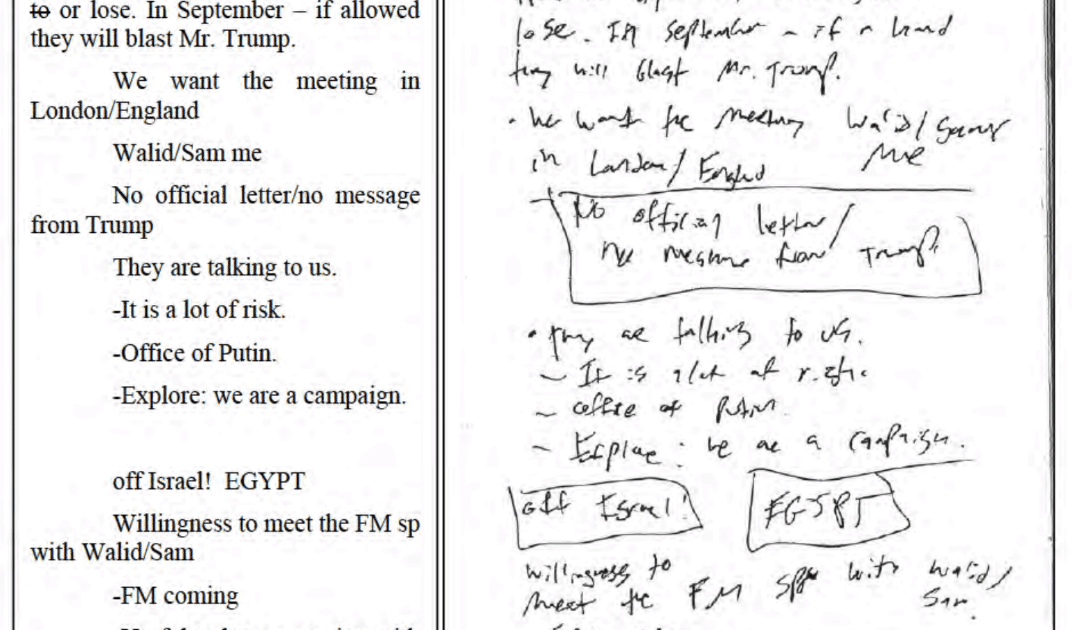 to or lose. In September – if allowed
they will blast Mr. Trump.
We want the meeting in
London/England
Walid/Sam me
No official letter/no message
from Trump
They are talking to us.
-It is a lot of risk.
-Office of Putin.
-Explore: we are a campaign.
off Israel! EGYPT
Willingness to meet the FM sp
with Walid/Sam
-FM coming
lose. In September –
they will blast Mr. Trump.
• We want the meeting Walid/
me
in London/England
No official letter/
no message from Trump
• they are talking to us.
– It is a lot of risk
– office of Putin.
– Explore: we are a campaign.
off Israel!
EGYPT
willingness to
meet the FM with Walid/
Sam